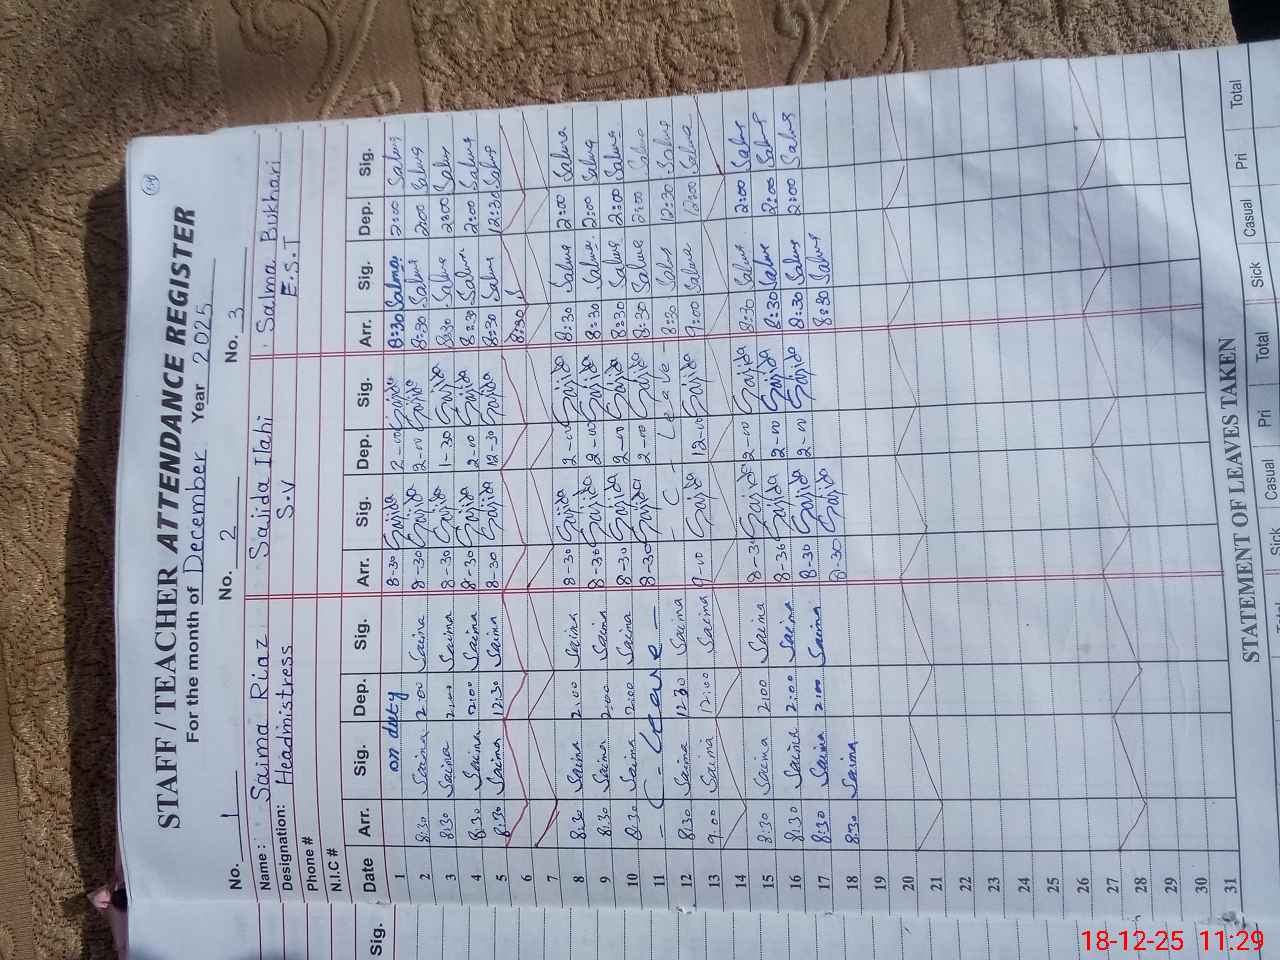 59
STAFF / TEACHER ATTENDANCE REGISTER
For the month of December Year 2025
No. 1 No. 2 No. 3
Name: Saima Riaz Sajida Ilahi Salma Bukhari
Designation: Headmistress S.V E.S.T
Phone #
N.I.C #
Sig. Date Arr. Sig. Dep. Sig. Arr. Sig. Dep. Sig. Arr. Sig. Dep. Sig.
1 on duty 8-30 Sajida 2-00 Sajida 8:30 Salma 2:00 Salma
2 8:30 Saima 2:00 Saima 8-30 Sajida 2-00 Sajida 8:30 Salma 2:00 Salma
3 8:30 Saima 2:00 Saima 8-30 Sajida 1-30 Sajida 8:30 Salma 2:00 Salma
4 8:30 Saima 2:00 Saima 8-30 Sajida 2-00 Sajida 8:30 Salma 2:00 Salma
5 8:30 Saima 12:30 Saima 8-30 Sajida 12-30 Sajida 8:30 Salma 12:30 Salma
6 8:30
7
8 8:30 Saima 2:00 Saima 8-30 Sajida 2-00 Sajida 8:30 Salma 2:00 Salma
9 8:30 Saima 2:00 Saima 8-30 Sajida 2-00 Sajida 8:30 Salma 2:00 Salma
10 8:30 Saima 2:00 Saima 8-30 Sajida 2-00 Sajida 8:30 Salma 2:00 Salma
11 - C - Leave - 8-30 Sajida 2-00 Sajida 8:30 Salma 2:00 Salma
12 8:30 Saima 12:30 Saima - C - Leave - 8:30 Salma 12:30 Salma
13 9:00 Saima 12:00 Saima 9-00 Sajida 12-00 Sajida 9:00 Salma 12:00 Salma
14
15 8:30 Saima 2:00 Saima 8-30 Sajida 2-00 Sajida 8:30 Salma 2:00 Salma
16 8:30 Saima 2:00 Saima 8-30 Sajida 2-00 Sajida 8:30 Salma 2:00 Salma
17 8:30 Saima 2:00 Saima 8-30 Sajida 2-00 Sajida 8:30 Salma 2:00 Salma
18 8:30 Saima 8-30 Sajida 8:30 Salma
19
20
21
22
23
24
25
26
27
28
29
30
31
STATEMENT OF LEAVES TAKEN
Sick Casual Pri Total Sick Casual Pri Total
18-12-25 11:29